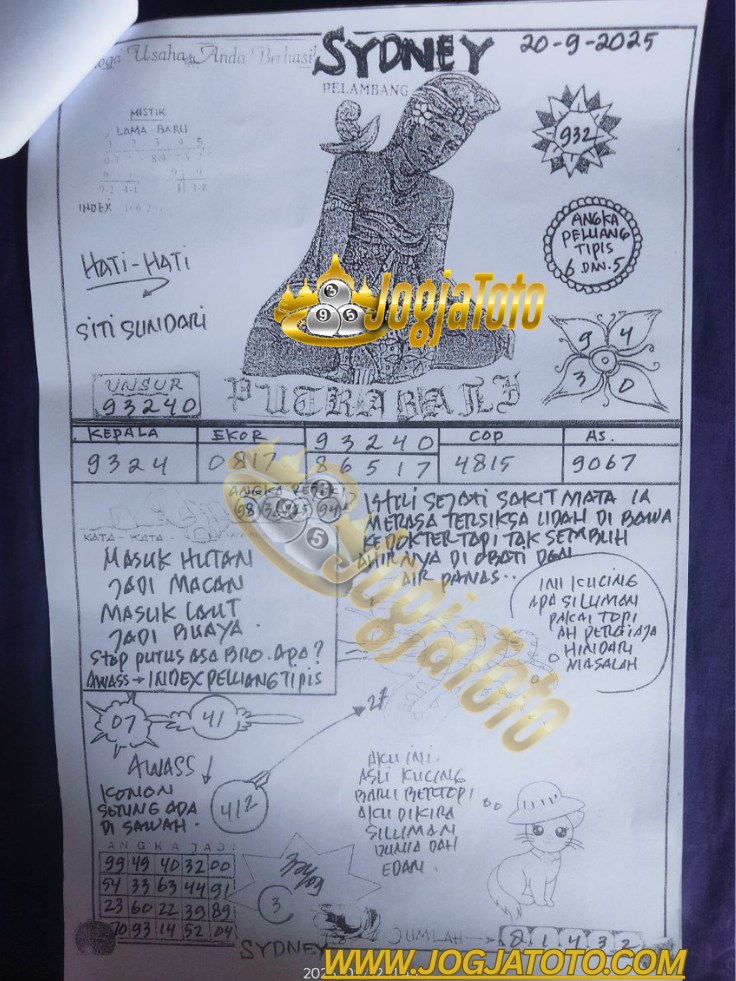 Usaha Anda Berhasil
SYDNEY
20-9-2025
PELAMBANG
MISTIK
LAMA - BARU
INDEX
932
ANGKA
PELUANG
TIPIS
6 DAN 5
HATI-HATI
SITI SUNDARI
JogjaToto
9 4
3 0
UNSUR
93240
PUTRA BALI
KEPALA EKOR 93240 COP AS.
9324 0817 86517 4815 9067
KATA - KATA
MASUK HUTAN
JADI MACAN
MASUK LAUT
JADI BUAYA.
STOP PUTUS ASA BRO. APA?
AWASS → INDEX PELUANG TIPIS
SEJATI SAKIT MATA IA
MERASA TERSIKSA LIDAH DI BAWA
KEDOKTER TAPI TAK SEMBUH
AHIRNYA DI OBATI DGN
AIR PANAS..
INI KUCING
APA SILUMAN
PAKAI TOPI
AH PERGI AJA
HINDARI
MASALAH
JogjaToto
07 41
27
AWASS ↓
KONON
SETUNG ADA
DI SAWAH.
412
AKU INI.
ASLI KUCING
BARU BERTOPI
AKU DIKIRA
SILUMAN
DUNIA DAH
EDAN.
ANGKA JADI
99 49 40 32 00
54 33 63 44 91
23 60 22 39 89
70 93 14 52 04
3
SYDNEY
JUMLAH → 8 1 4 3 2
WWW.JOGJATOTO.COM